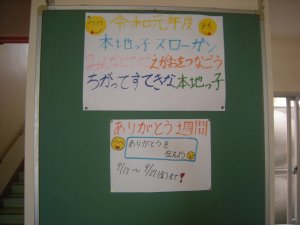 令和元年度
本地っ子スローガン
みんなにこにこえがおをつなごう
ちがってすてきな本地っ子
ありがとう週間
ありがとうを
伝えよう
9/13〜9/27(金)まで!